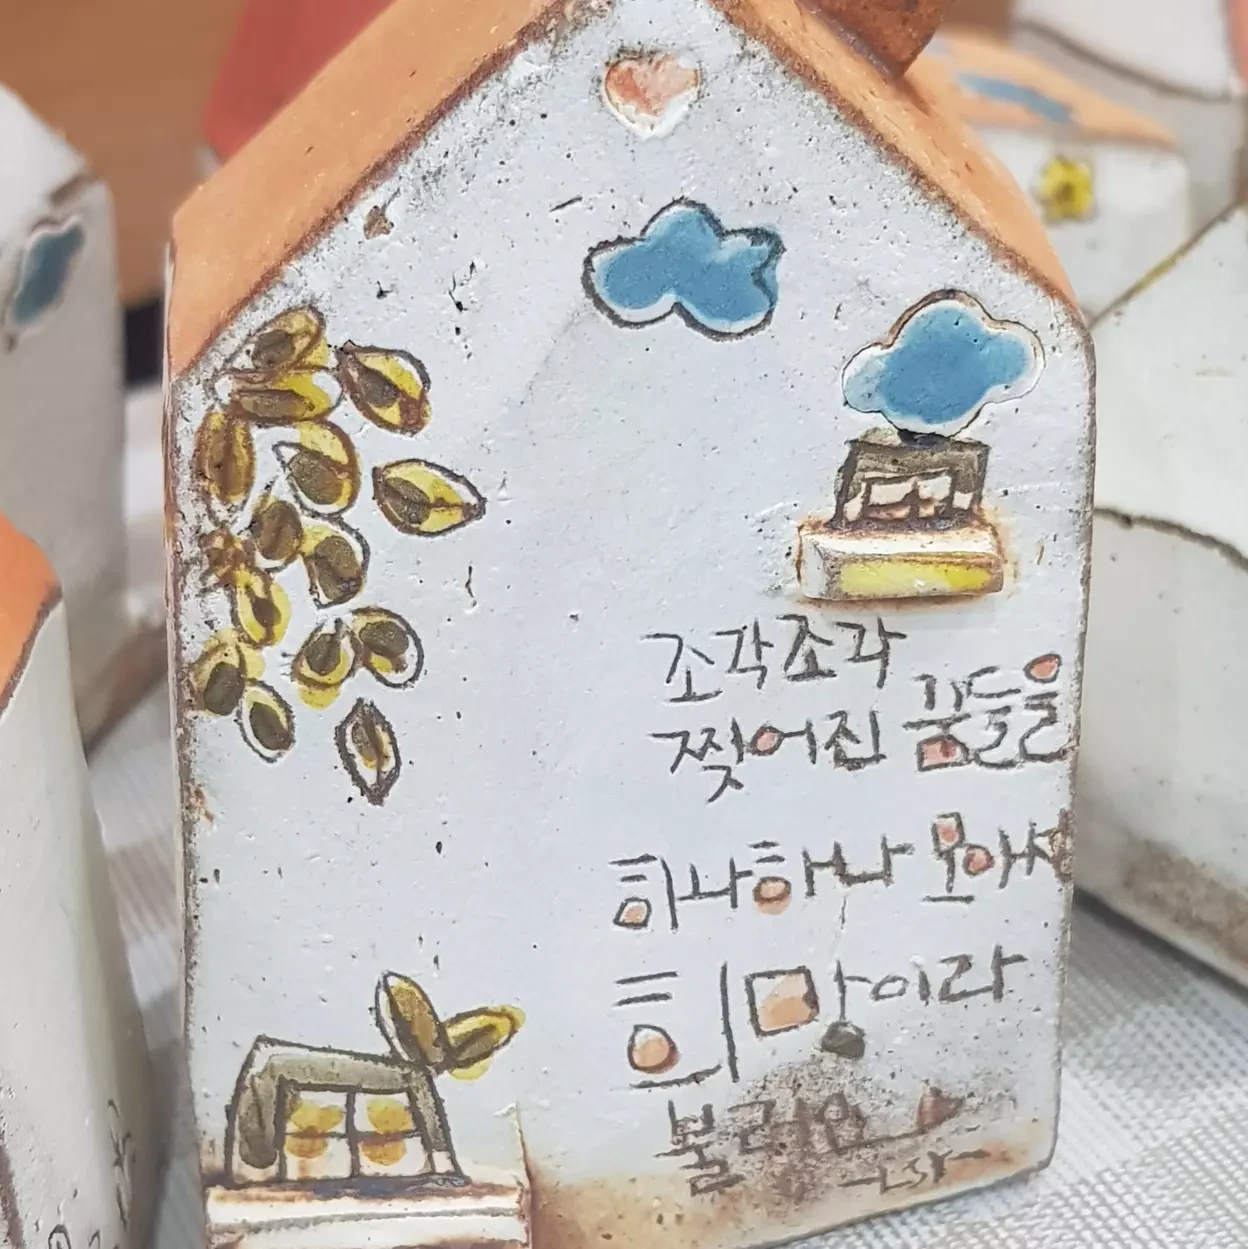 조각조각
찢어진 꿈들을
하나하나 모아서
희망이라
불러요
-LSY-